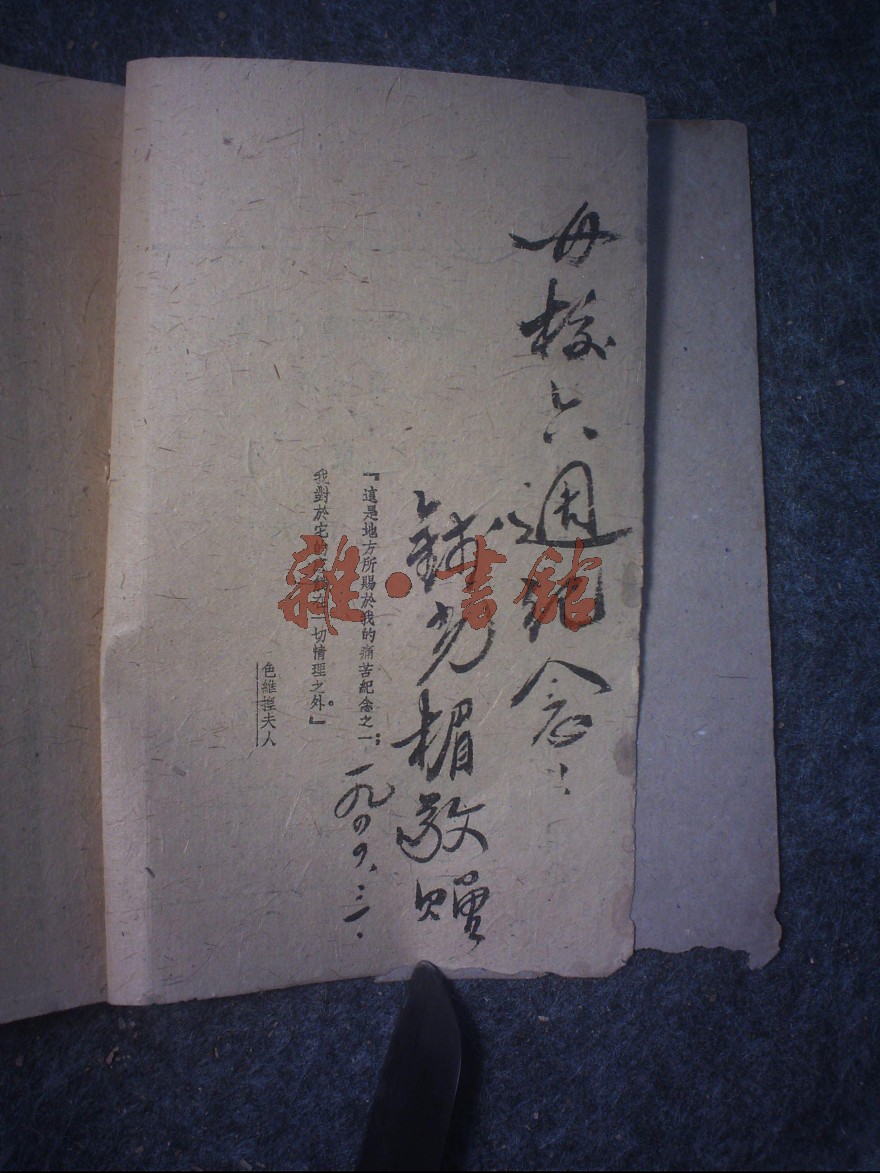 母校六週紀念
敬贈
一九四四、三、
『這是地方所賜於我的痛苦紀念之一；
我對於它的 一切情理之外。』
色維捏夫人
雜·書館